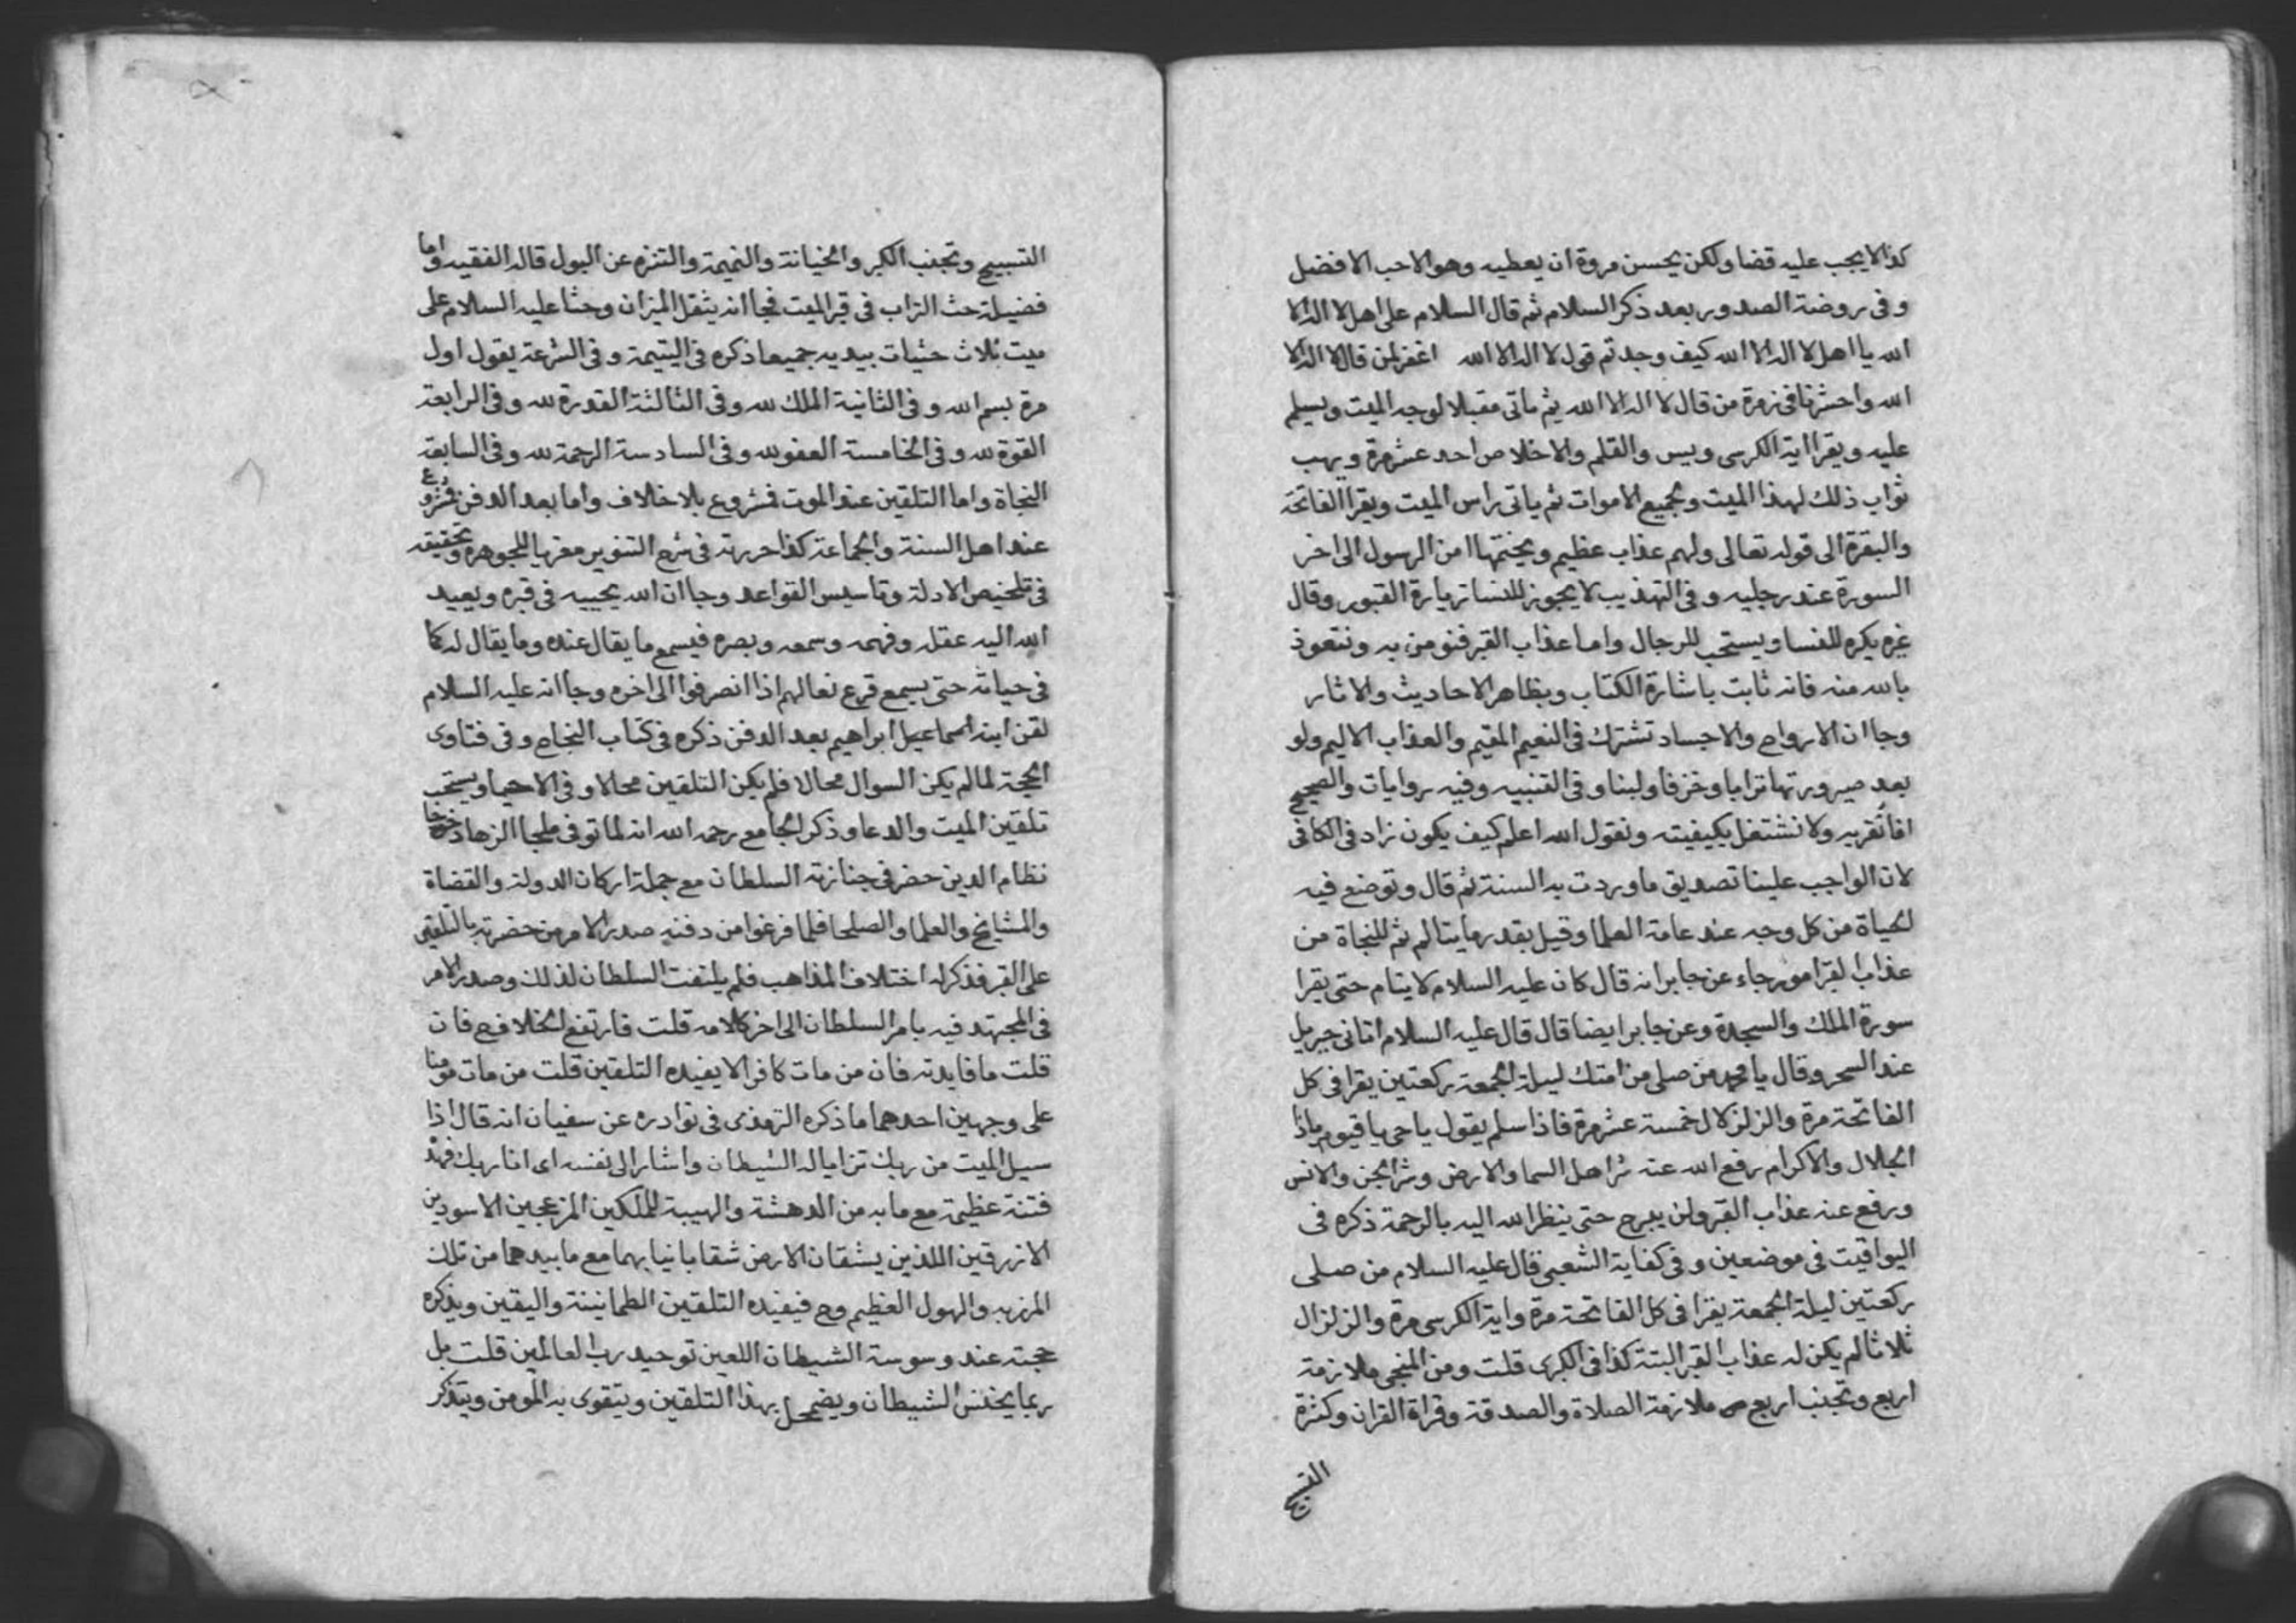 كذا لا يجب عليه قضا ولكن يحسن مروة ان يعطيه وهو الاحب الافضل
وفى روضة الصدور بعد ذكر السلام ثم قال السلام على اهل لا اله الا
الله يا اهل لا اله الا الله كيف وجدتم قول لا اله الا الله اغفر لمن قال لا اله الا
الله واحشرنا فى زمرة من قال لا اله الا الله ثم ياتى مقبلا لوجه الميت ويسلم
عليه ويقرا اية الكرسى ويس والقلم والاخلاص احد عشر مرة ويهب
ثواب ذلك لهذا الميت ولجميع الاموات ثم ياتى راس الميت ويقرا الفاتحة
والبقرة الى قوله تعالى ولهم عذاب عظيم ويختمها امن الرسول الى اخر
السورة عند رجليه وفى التهذيب لا يجوز للنسا زيارة القبور وقال
غيره يكره للنسا ويستحب للرجال واما عذاب القبر فنومن به ونتعوذ
بالله منه فانه ثابت باشارة الكتاب وبظاهر الاحاديث والاثار
وجا ان الارواح والاجساد تشترك فى النعيم المقيم والعذاب الاليم ولو
بعد صيرورتها ترابا وخزفا ولبنا وفى القنيه وفيه روايات والصحيح
انا نقر به ولا نشتغل بكيفيته ونقول الله اعلم كيف يكون زاد فى الكافى
لان الواجب علينا تصديق ما وردت به السنة ثم قال وتوضع فيه
الحياة من كل وجه عند عامة العلما وقيل بقدر ما يتالم ثم للنجاة من
عذاب القبر امور جاء عن جابر انه قال كان عليه السلام لا ينام حتى يقرا
سورة الملك والسجدة وعن جابر ايضا قال قال عليه السلام اتانى جبريل
عند السحر وقال يا محمد من صلى من امتك ليلة الجمعة ركعتين يقرا فى كل
الفاتحة مرة والزلزال خمسة عشر مرة فاذا سلم يقول يا حى يا قيوم ياذا
الجلال والاكرام رفع الله عنه شر اهل السما والارض وشر الجن والانس
ورفع عنه عذاب القبر ولن يبرح حتى ينظر الله اليه بالرحمة ذكره فى
اليواقيت فى موضعين وفى كفاية الشعبى قال عليه السلام من صلى
ركعتين ليلة الجمعة يقرا فى كل الفاتحة مرة واية الكرسى مرة والزلزال
ثلاثا لم يكن له عذاب القبر البتة كذا فى الكبرى قلت ومن المنجى ملازمة
اربع وتجنب اربع ملازمة الصلاة والصدقة وقراة القران وكثرة
التسبيح
التسبيح وتجنب الكبر والخيانة والنميمة والتنزه عن البول قاله الفقيه واما
فضيلة حث التراب فى قبر الميت فجا انه يثقل الميزان وحثا عليه السلام على
ميت ثلاث حثيات بيديه جميعا ذكره فى اليتيمة وفى الشرعة يقول اول
مرة بسم الله وفى الثانية الملك لله وفى الثالثة القدرة لله وفى الرابعة
القوة لله وفى الخامسة العفو لله وفى السادسة الرحمة لله وفى السابعة
النجاة واما التلقين عند الموت فمشروع بلا خلاف واما بعد الدفن فمشروع
عند اهل السنة والجماعة كذا حررته فى شرح التنوير معزيا للجوهرة وتحقيقه
فى تلخيص الادلة وتاسيس القواعد وجا ان الله يحييه فى قبره ويعيد
الله اليه عقله وفهمه وسمعه وبصره فيسمع ما يقال عنده وما يقال له كما
فى حياته حتى يسمع قرع نعالهم اذا انصرفوا الى اخره وجا انه عليه السلام
لقن ابنه اسماعيل ابراهيم بعد الدفن ذكره فى كتاب النجاح وفى فتاوى
الحجة لما لم يكن السوال محالا فلم يكن التلقين محالا وفى الاحيا ويستحب
تلقين الميت والدعا وذكر الجامع رحمه الله انه لما توفى ملجا الزهاد خوجا
نظام الدين حضر فى جنازته السلطان مع جملة اركان الدولة والقضاة
والمشايخ والعلما والصلحا فلما فرغوا من دفنه صدر الامر من حضرته بالتلقين
على القبر فذكر له اختلاف المذاهب فلم يلتفت السلطان لذلك وصدر الامر
فى المجتهد فيه بامر السلطان الى اخر كلامه قلت فارتفع الخلاف ح فان
قلت ما فايدته فان من مات كافرا لا يفيده التلقين قلت من مات مومنا
على وجهين احدهما ما ذكره الترمذى فى نوادره عن سفيان انه قال اذا
سيل الميت من ربك ترايا له الشيطان واشار الى نفسه اى انا ربك فهذه
فتنة عظيمة مع ما به من الدهشة والهيبة للملكين المزعجين الاسودين
الازرقين اللذين يشقان الارض شقا بانيابهما مع ما بيدهما من تلك
المرزبه والهول العظيم وح فيفيده التلقين الطمانينة واليقين ويذكره
حجته عند وسوسة الشيطان اللعين توحيد رب العالمين قلت بل
ربما يخنس الشيطان ويضمحل بهذا التلقين ويتقوى به المومن ويتذكر